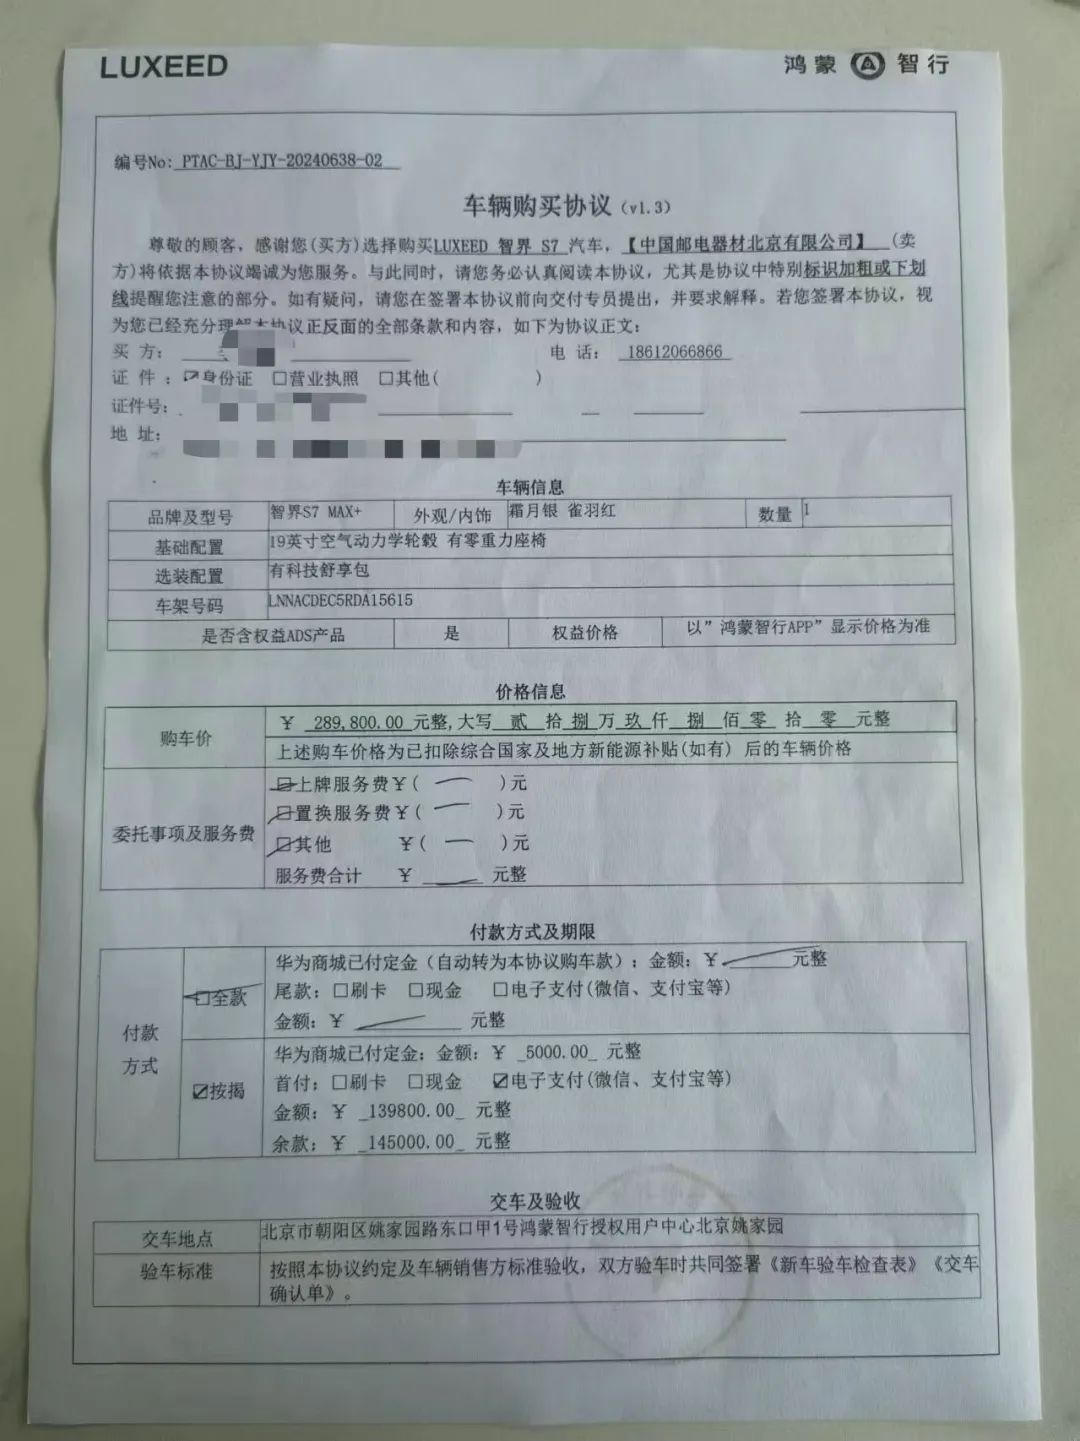 LUXEED
鸿蒙 智行
编号No: PTAC-BJ-YJY-20240638-02
车辆购买协议(v1.3)
尊敬的顾客，感谢您(买方)选择购买LUXEED 智界 S7 汽车，【中国邮电器材北京有限公司】 (卖
方)将依据本协议竭诚为您服务。与此同时，请您务必认真阅读本协议，尤其是协议中特别标识加粗或下划
线提醒您注意的部分。如有疑问，请您在签署本协议前向交付专员提出，并要求解释。若您签署本协议，视
为您已经充分理解本协议正反面的全部条款和内容，如下为协议正文：
买 方： 电 话： 18612066866
证 件：☑身份证 □营业执照 □其他( )
证件号：
地 址：
车辆信息
品牌及型号 智界S7 MAX+ 外观/内饰 霜月银 雀羽红 数量 1
基础配置 19英寸空气动力学轮毂 有零重力座椅
选装配置 有科技舒享包
车架号码 LNNACDEC5RDA15615
是否含权益ADS产品 是 权益价格 以”鸿蒙智行APP”显示价格为准
价格信息
购车价 ￥ 289,800.00 元整,大写 贰 拾 捌 万 玖 仟 捌 佰 零 拾 零 元整
上述购车价格为已扣除综合国家及地方新能源补贴(如有) 后的车辆价格
委托事项及服务费
□上牌服务费￥( — )元
□置换服务费￥( — )元
□其他 ￥( — )元
服务费合计 ￥ 元整
付款方式及期限
付款方式
□全款 华为商城已付定金（自动转为本协议购车款）：金额：￥ 元整
尾款：□刷卡 □现金 □电子支付(微信、支付宝等)
金额：￥ 元整
☑按揭 华为商城已付定金：金额：￥ _5000.00_ 元整
首付：□刷卡 □现金 ☑电子支付(微信、支付宝等)
金额：￥ _139800.00_ 元整
余款：￥ _145000.00_ 元整
交车及验收
交车地点 北京市朝阳区姚家园路东口甲1号鸿蒙智行授权用户中心北京姚家园
验车标准 按照本协议约定及车辆销售方标准验收，双方验车时共同签署《新车验车检查表》《交车
确认单》。